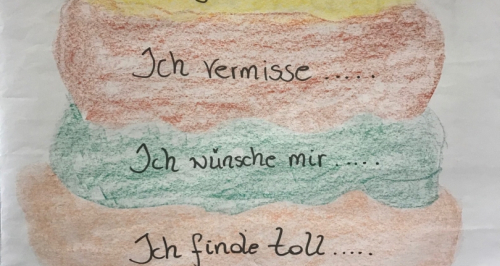 Ich vermisse .....
Ich wünsche mir .....
Ich finde toll .....